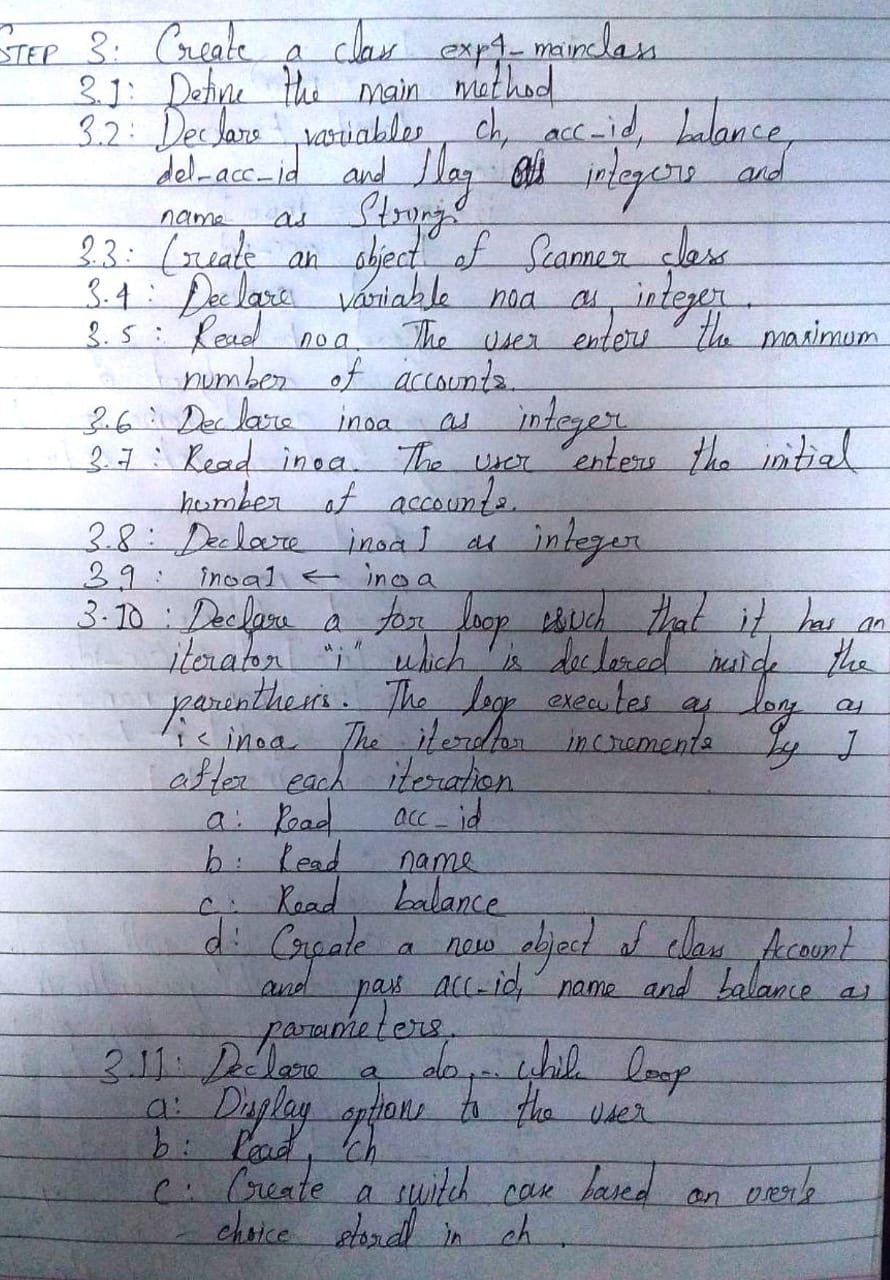 STEP 3: Create a class exp4-mainclass
3.1: Define the main method
3.2: Declare variables ch, acc-id, balance,
del-acc-id and flag as integers and
name as String.
3.3: Create an object of Scanner class
3.4: Declare variable noa as integer.
3.5: Read noa. The user enters the maximum
number of accounts.
3.6: Declare inoa as integer
3.7: Read inoa. The user enters the initial
number of accounts.
3.8: Declare inoa1 as integer
3.9: inoa1 ← inoa
3.10: Declare a for loop such that it has an
iterator "i" which is declared inside the
parenthesis. The loop executes as long as
i< inoa. The iterator increments by 1
after each iteration
a: Read acc-id
b: Read name
c: Read balance
d: Create a new object of class Account
and pass acc-id, name and balance as
parameters.
3.11: Declare a do... while loop
a: Display options to the user
b: Read ch
c: Create a switch case based on user's
choice stored in ch.